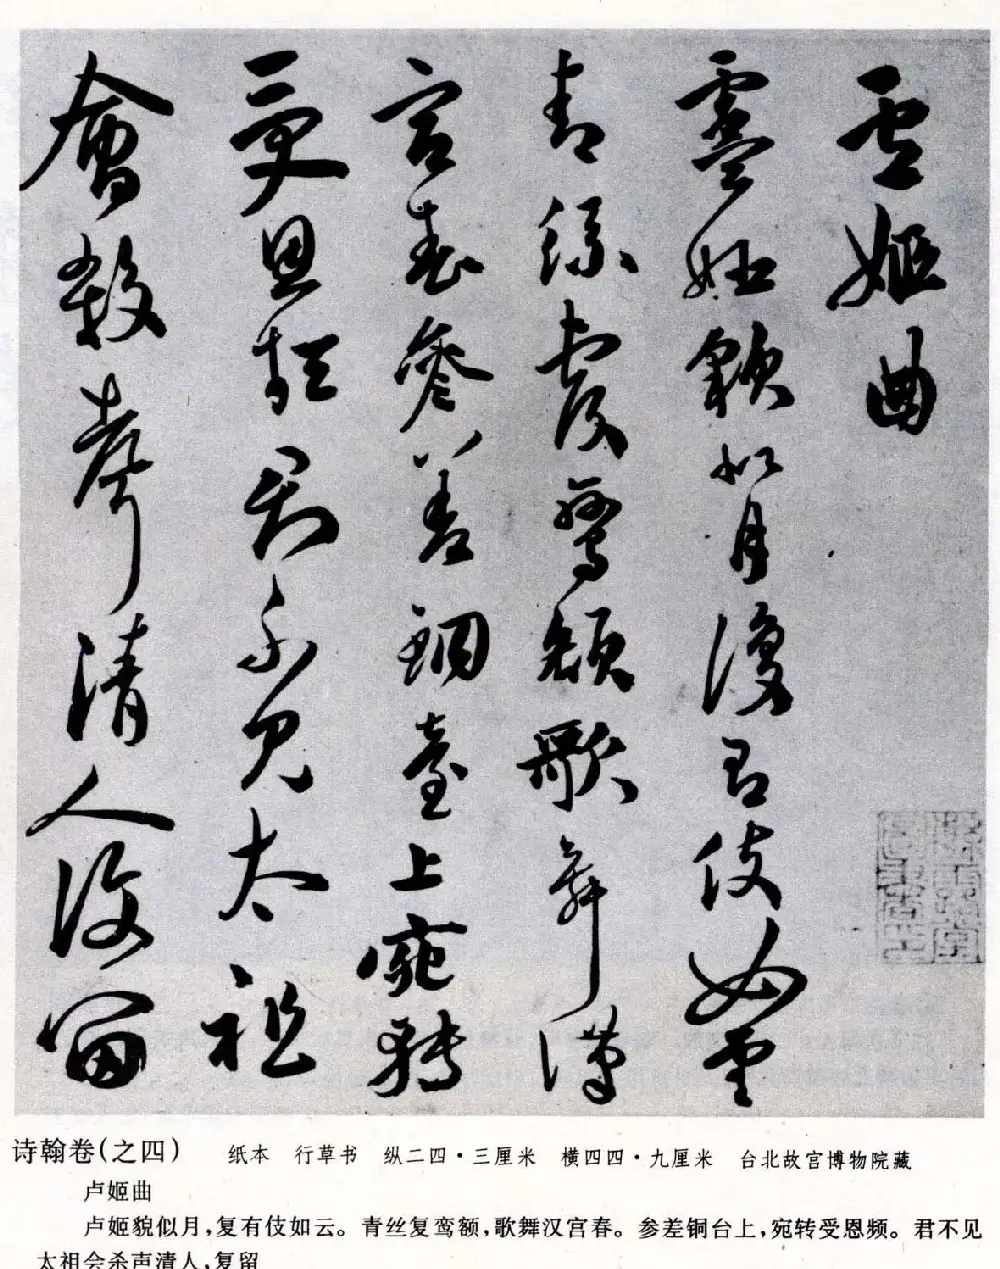 盧姬曲
盧姬貌似月復有伎如雲
青絲覆鸞額歌舞漢
宮春參差銅臺上宛轉
受恩頻君不見太祖
會殺聲清人復留
诗翰卷(之四) 纸本 行草书 纵二四·三厘米 横四四·九厘米 台北故宫博物院藏
卢姬曲
卢姬貌似月,复有伎如云。青丝复鸾额,歌舞汉宫春。参差铜台上,宛转受恩频。君不见
太祖会杀声清人,复留